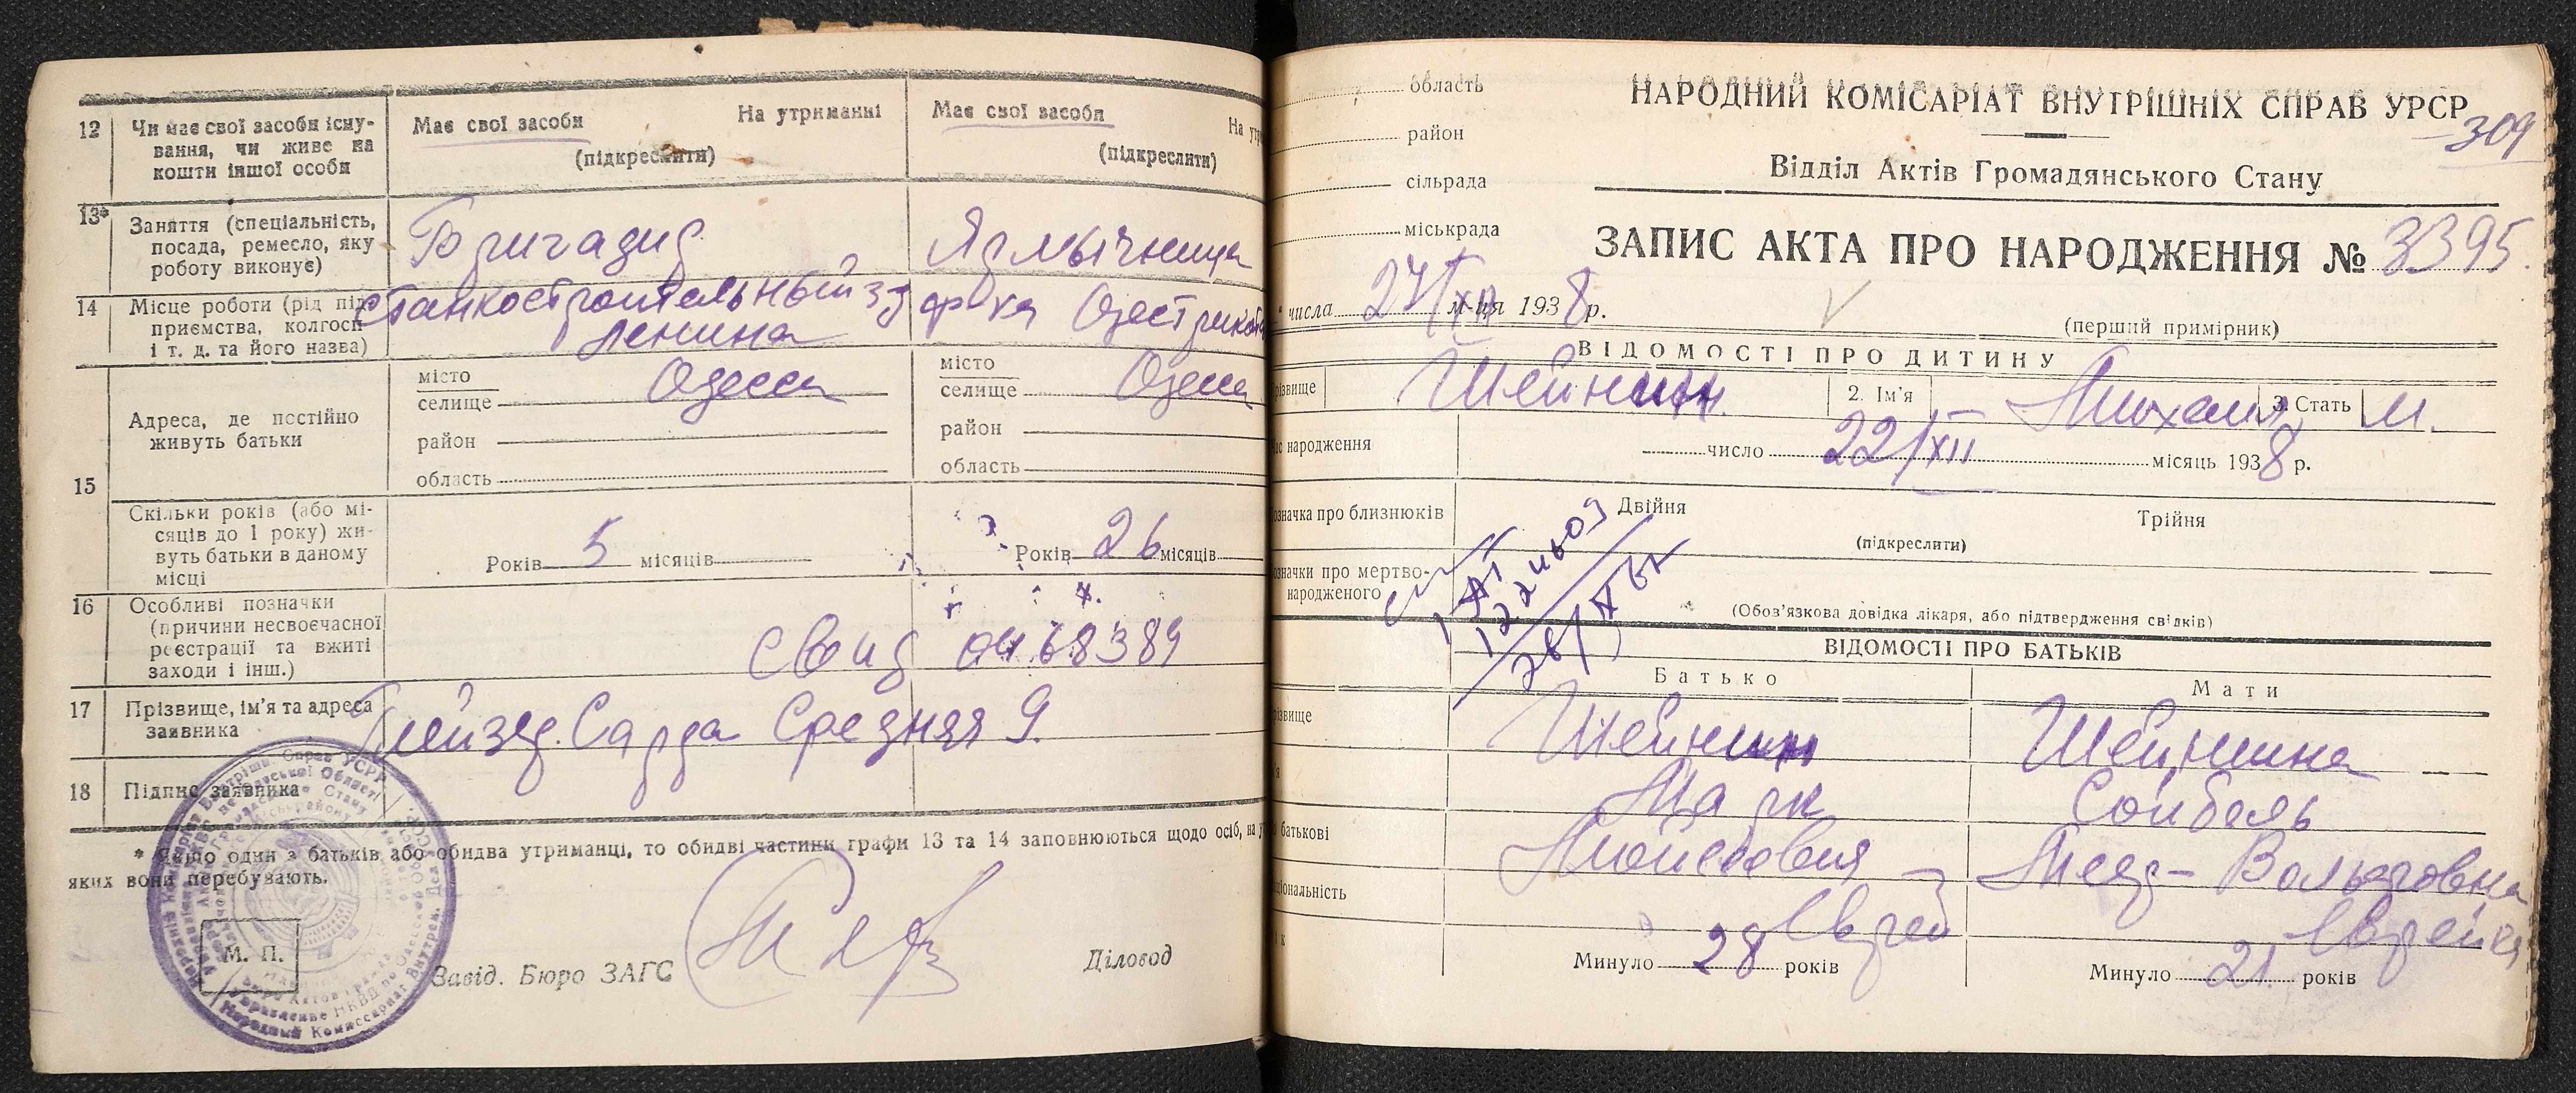 12 Чи має свої засоби існу-
вання, чи живе на
кошти іншої особи
Має свої засоби На утриманні
(підкреслити)
Має свої засоби
(підкреслити)
13* Заняття (спеціальність,
посада, ремесло, яку
роботу виконує)
Бригадир
14 Місце роботи (рід під-
приємства, колгосп
і т. д. та його назва)
Станкостроительный
Ленина
ф-ка
15 Адреса, де постійно
живуть батьки
місто
селище Одесса
район
область
місто
селище Одесса
район
область
Скільки років (або мі-
сяців до 1 року) жи-
вуть батьки в даному
місці
Років 5 місяців
Років 26 місяців
16 Особливі позначки
(причини несвоєчасної
реєстрації та вжиті
заходи і інш.)
Свид 0468389
17 Прізвище, ім'я та адреса
заявника
Сарра Средняя 9.
18 Підпис заявника
* Якщо один з батьків або обидва утриманці, то обидві частини графи 13 та 14 заповнюються щодо осіб, на
яких вони перебувають.
М. П.
Завід. Бюро ЗАГС
Діловод
область
район
сільрада
міськрада
НАРОДНИЙ КОМІСАРІАТ ВНУТРІШНІХ СПРАВ УРСР
309
Відділ Актів Громадянського Стану
ЗАПИС АКТА ПРО НАРОДЖЕННЯ № 3395
числа 27/XII м-ця 1938 р.
(перший примірник)
ВІДОМОСТІ ПРО ДИТИНУ
Шейнин 2. Ім'я Михаил 3. Стать М.
народження число 22/XII місяць 1938 р.
про близнюків Двійня Трійня
(підкреслити)
про мертво-
народженого
(Обов'язкова довідка лікаря, або підтвердження свідків)
ВІДОМОСТІ ПРО БАТЬКІВ
Батько Мати
Шейнин Шейнина
Марк Сойбель
батькові Мойсеовия Меер-Вольфовна
Еврей Еврейка
Минуло 28 років Минуло 21 років